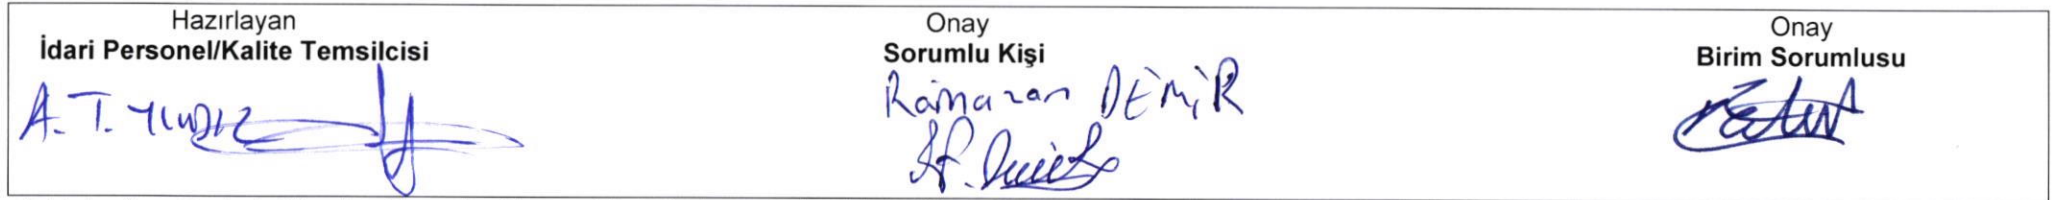 Hazırlayan
İdari Personel/Kalite Temsilcisi
A. T. YILDIZ
Onay
Sorumlu Kişi
Ramazan DEMİR
Onay
Birim Sorumlusu